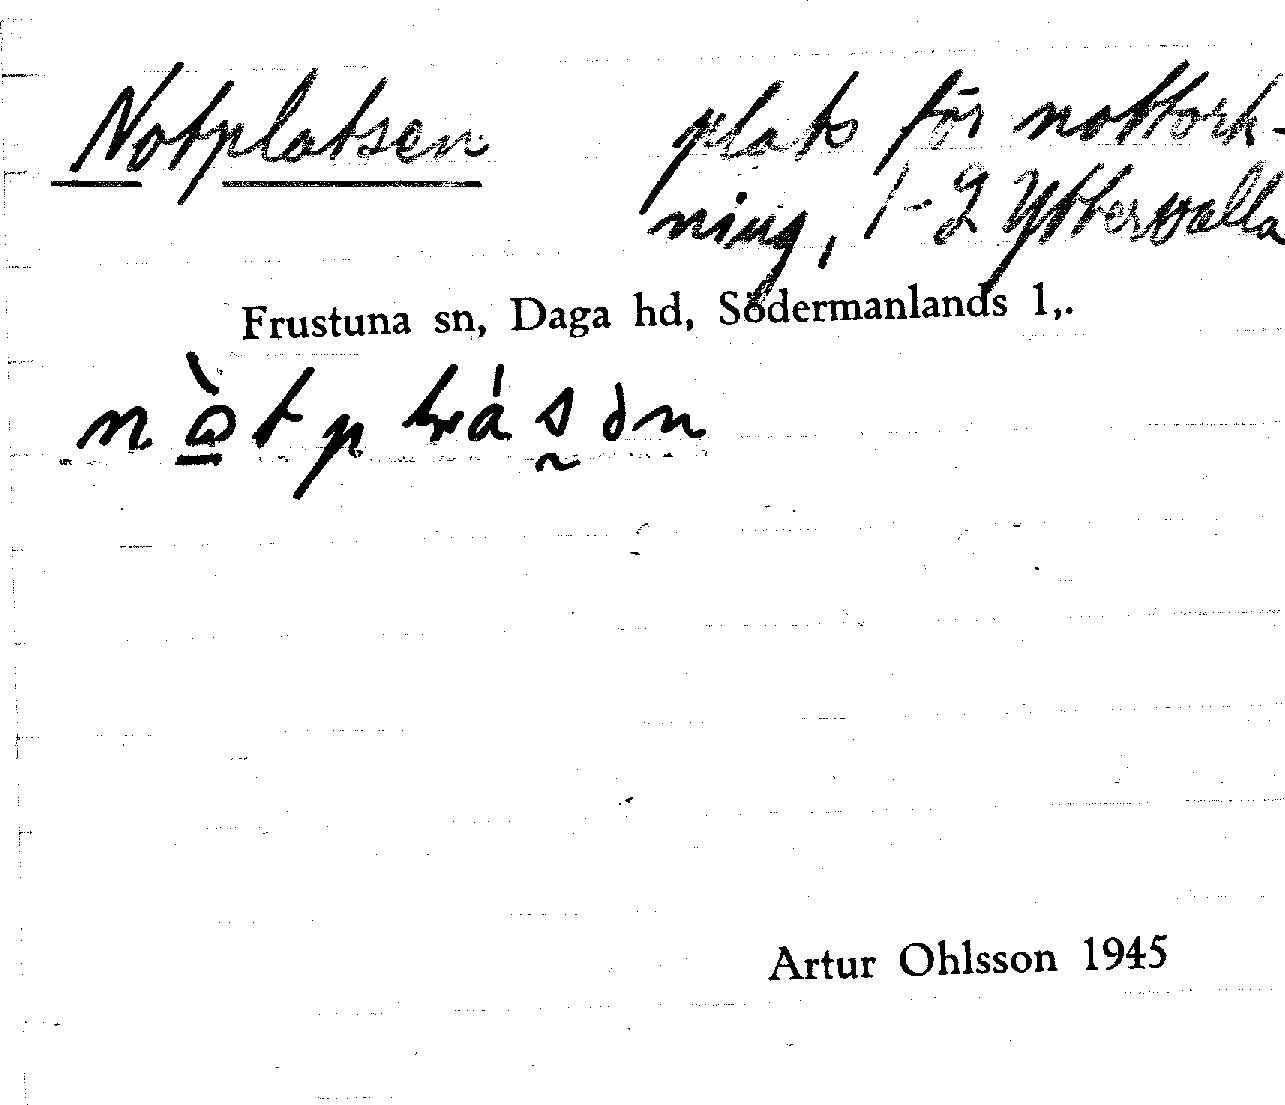 Notplatsen plats för nottork-
ning, 1-2 Yttervalla
Frustuna sn, Daga hd, Södermanlands l,.
Artur Ohlsson 1945